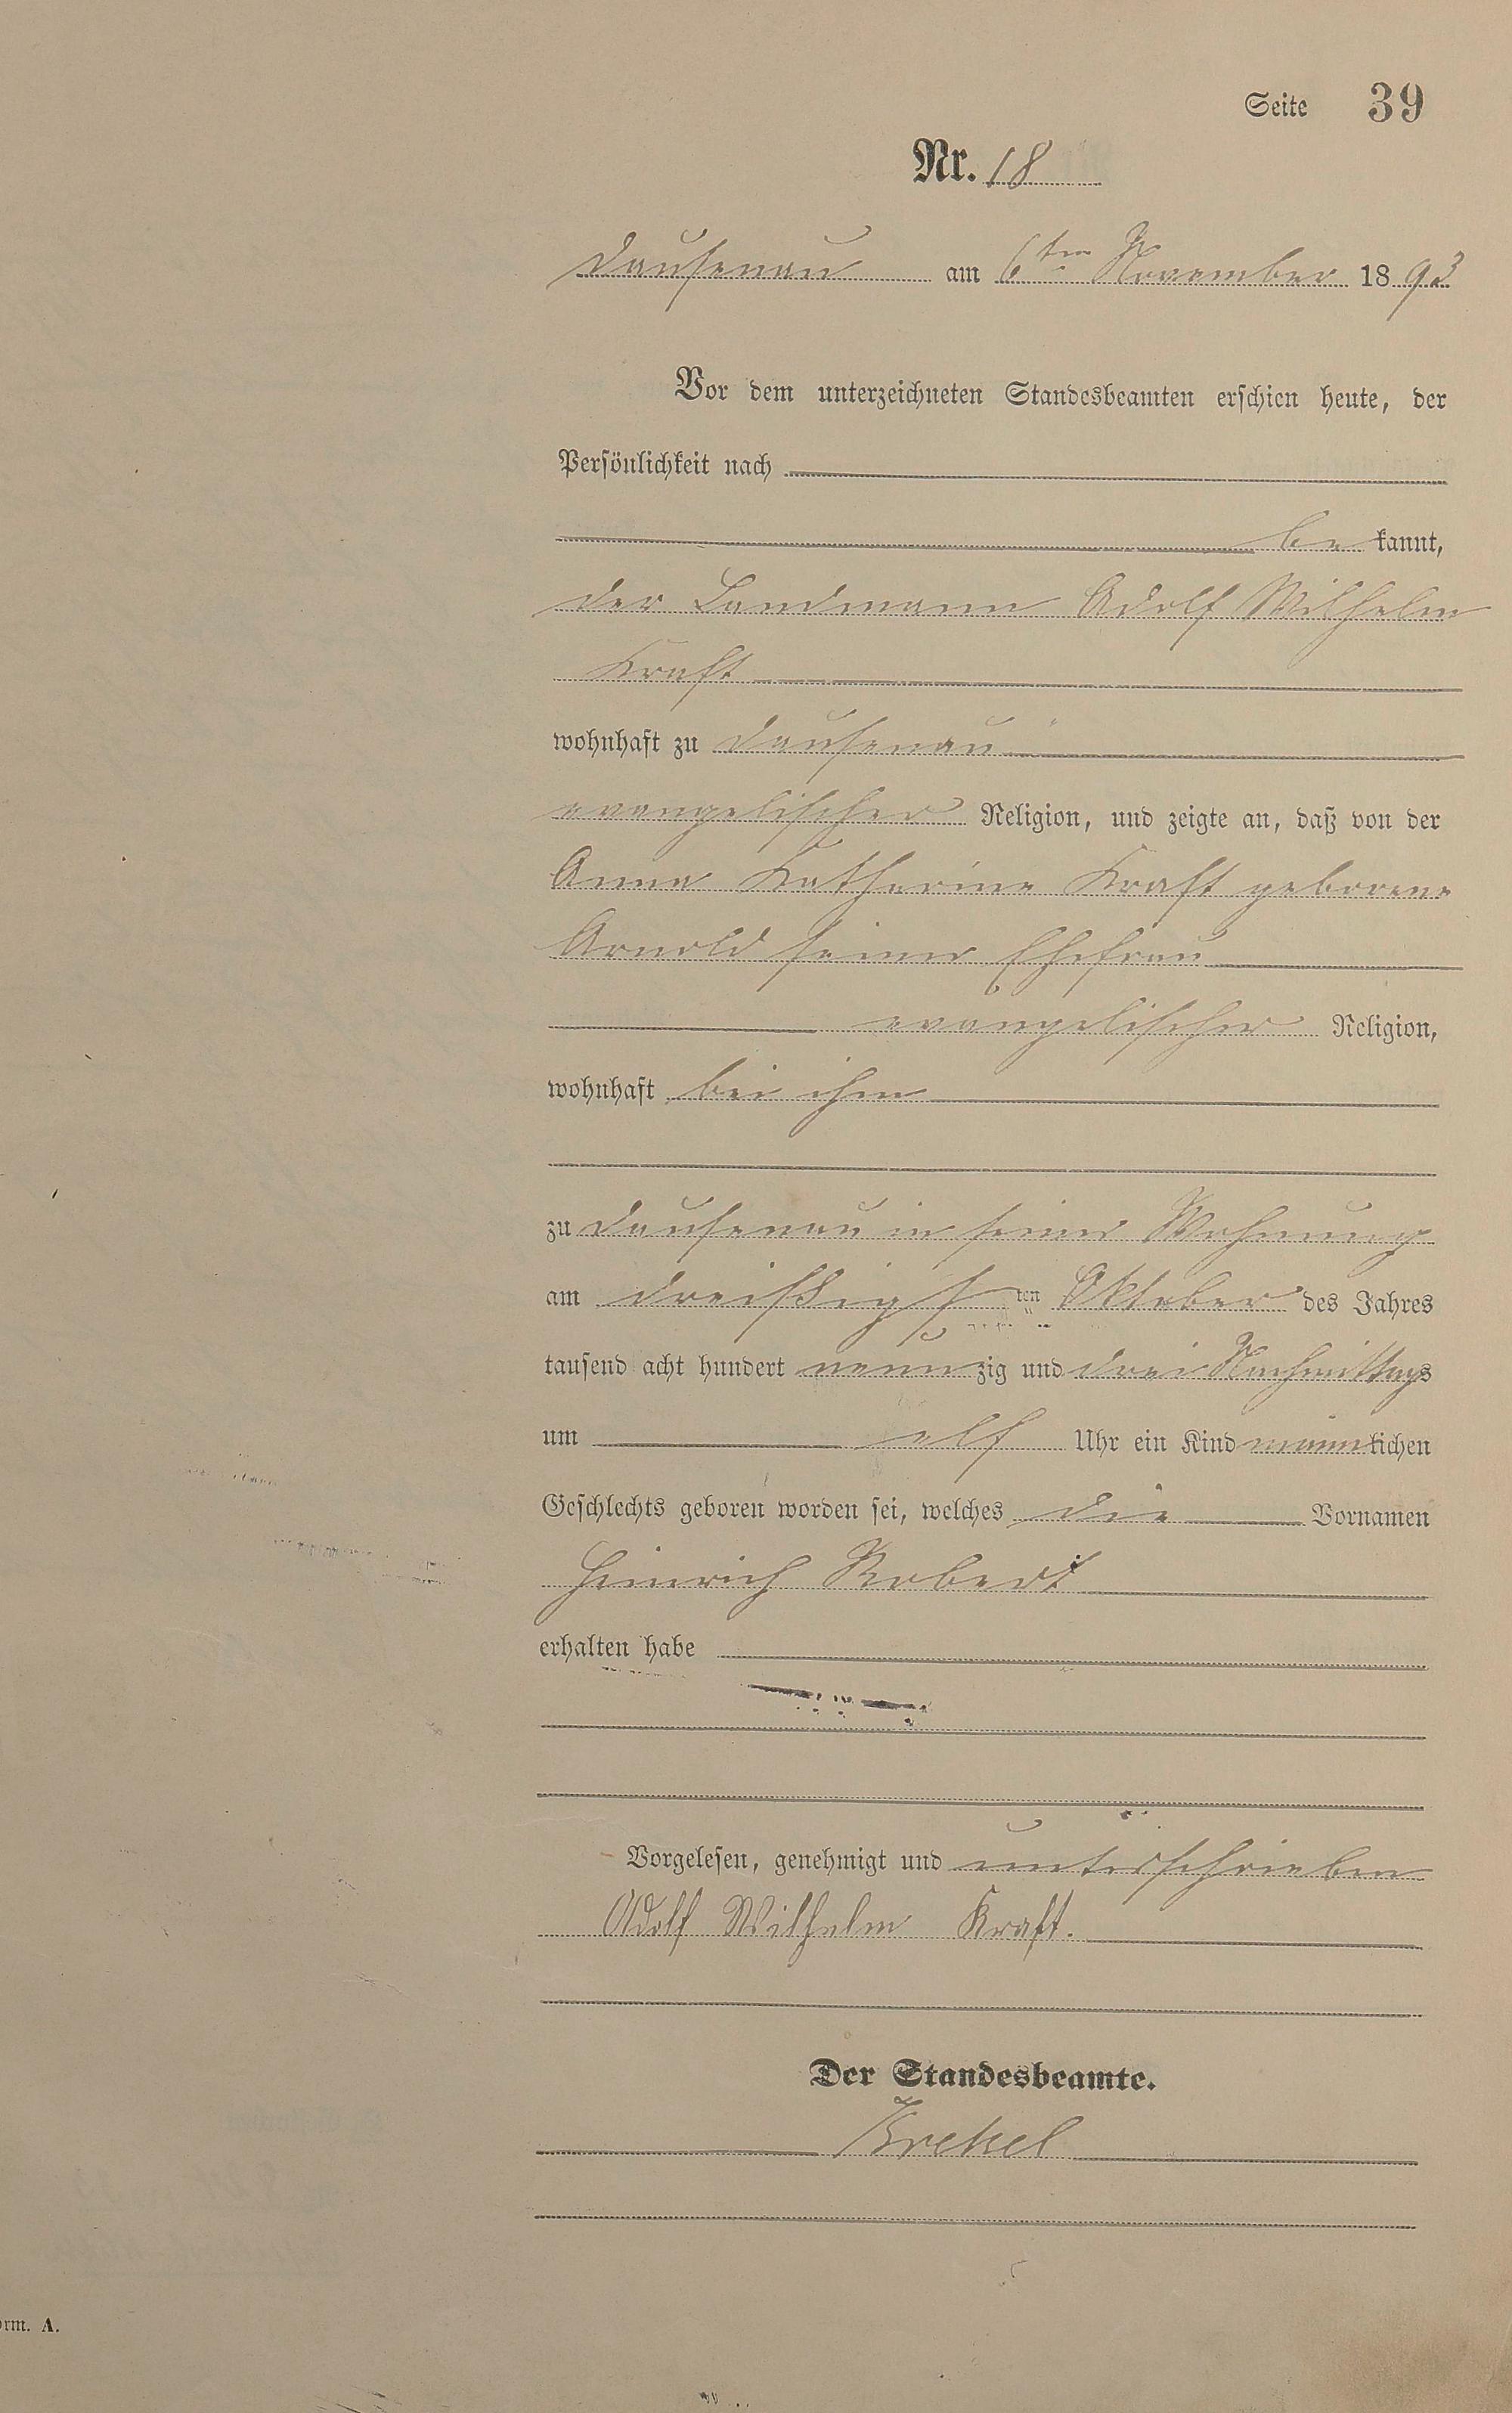 Seite 39
Nr. 18
Dausenau am 6ten November 1893
Vor dem unterzeichneten Standesbeamten erschien heute, der
Persönlichkeit nach
be kannt,
der Landmann Adolf Wilhelm
Kraft
wohnhaft zu Dausenau
evangelischer Religion, und zeigte an, daß von der
Anna Katharine Kraft geborene
Arnold seiner Ehefrau
evangelischer Religion,
wohnhaft bei ihm
zu Dausenau in seiner Wohnung
am dreißigsten Oktober des Jahres
tausend acht hundert neunzig und drei Nachmittags
um elf Uhr ein Kind männlichen
Geschlechts geboren worden sei, welches die Vornamen
Heinrich Robert
erhalten habe
Vorgelesen, genehmigt und unterschrieben
Adolf Wilhelm Kraft.
Der Standesbeamte.
Krekel
orm. A.